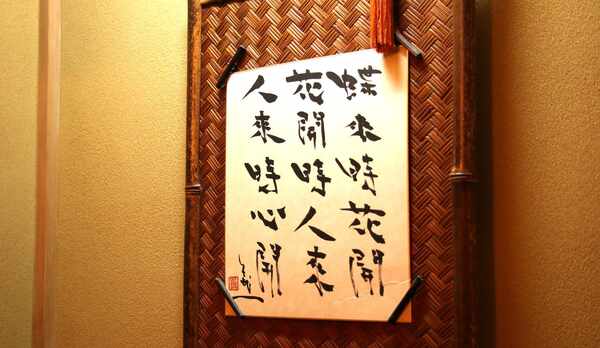 蝶来時花開
花開時人来
人來時心開